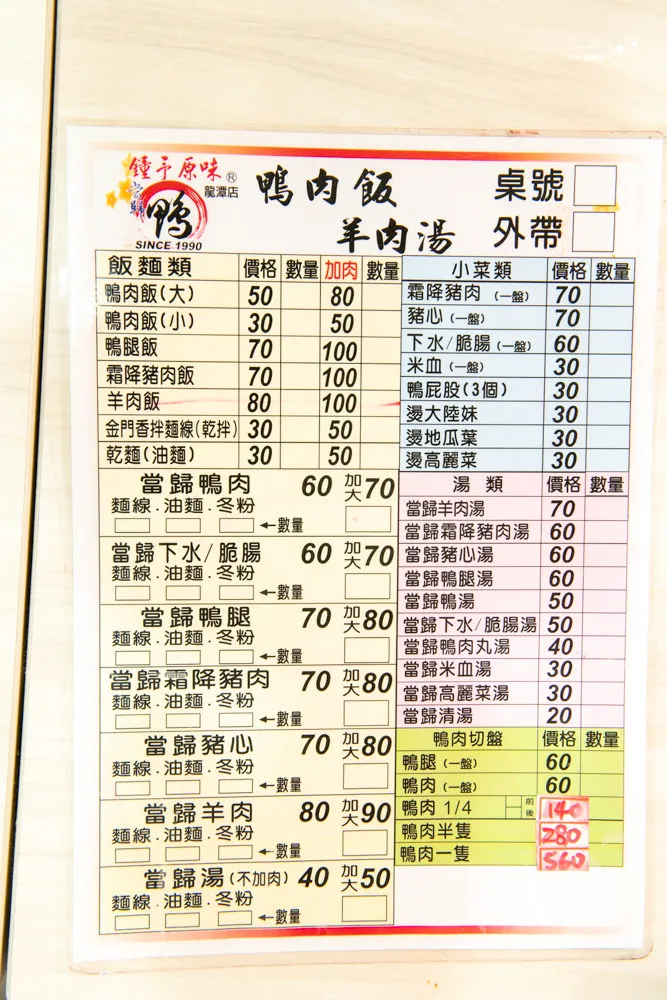 鐘予原味®
當歸鴨
龍潭店
SINCE 1990
鴨肉飯
羊肉湯
桌號
外帶
飯麵類 價格 數量 加肉 數量
鴨肉飯(大) 50 80
鴨肉飯(小) 30 50
鴨腿飯 70 100
霜降豬肉飯 70 100
羊肉飯 80 100
金門香拌麵線(乾拌) 30 50
乾麵(油麵) 30 50
當歸鴨肉 60 加大70
麵線.油麵.冬粉
←數量
當歸下水/脆腸 60 加大70
麵線.油麵.冬粉
←數量
當歸鴨腿 70 加大80
麵線.油麵.冬粉
←數量
當歸霜降豬肉 70 加大80
麵線.油麵.冬粉
←數量
當歸豬心 70 加大80
麵線.油麵.冬粉
←數量
當歸羊肉 80 加大90
麵線.油麵.冬粉
←數量
當歸湯(不加肉) 40 加大50
麵線.油麵.冬粉
←數量
小菜類 價格 數量
霜降豬肉(一盤) 70
豬心(一盤) 70
下水/脆腸(一盤) 60
米血(一盤) 30
鴨屁股(3個) 30
燙大陸妹 30
燙地瓜葉 30
燙高麗菜 30
湯類 價格 數量
當歸羊肉湯 70
當歸霜降豬肉湯 60
當歸豬心湯 60
當歸鴨腿湯 60
當歸鴨湯 50
當歸下水/脆腸湯 50
當歸鴨肉丸湯 40
當歸米血湯 30
當歸高麗菜湯 30
當歸清湯 20
鴨肉切盤 價格 數量
鴨腿(一盤) 60
鴨肉(一盤) 60
鴨肉 1/4 前 後 140
鴨肉半隻 280
鴨肉一隻 560